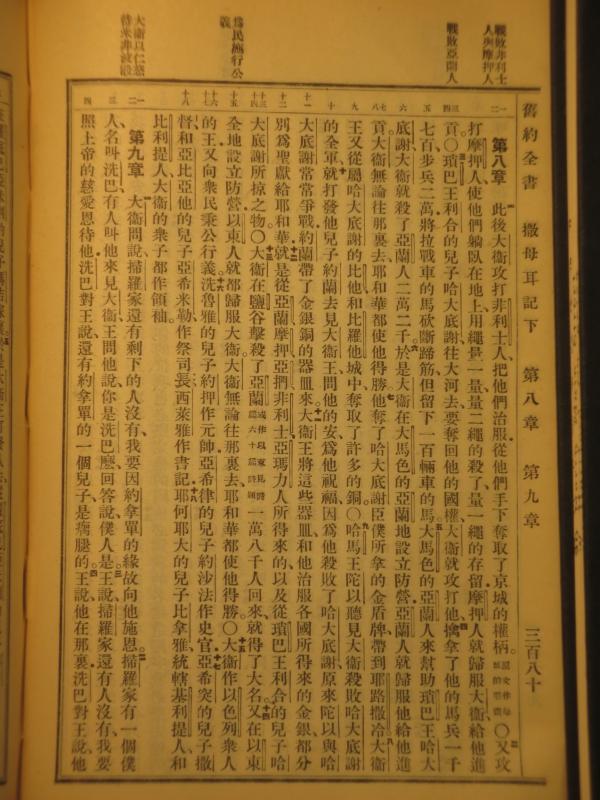 舊約全書 撒母耳記下 第八章 第九章 三百八十
戰敗非利士人與摩押人
戰敗亞蘭人
爲民施行公義
大衞以仁慈待米非波設
第八章 此後大衞攻打非利士人把他們治服從他們手下奪取了京城的權柄〇又攻
打摩押人使他們躺臥在地上用繩量一量量二繩的殺了量一繩的存留摩押人就歸服大衞給他進
貢〇瑣巴王利合的兒子哈大底謝往大河去要奪回他的國權大衞就攻打他擒拿了他的馬兵一千
七百步兵二萬將拉戰車的馬砍斷蹄筋但留下一百輛車的馬大馬色的亞蘭人來幫助瑣巴王哈大
底謝大衞就殺了亞蘭人二萬二千於是大衞在大馬色的亞蘭地設立防營亞蘭人就歸服他給他進
貢大衞無論往那裏去耶和華都使他得勝他奪了哈大底謝臣僕所拿的金盾牌帶到耶路撒冷大衞
王又從屬哈大底謝的比他和比羅他城中奪取了許多的銅〇哈馬王陀以聽見大衞殺敗哈大底謝
的全軍就打發他兒子約蘭去見大衞王問他的安爲他祝福因爲他殺敗了哈大底謝原來陀以與哈
大底謝常常爭戰約蘭帶了金銀銅的器皿來大衞王將這些器皿和他治服各國所得來的金銀都分
別爲聖獻給耶和華就是從亞蘭摩押亞捫非利士亞瑪力人所得來的以及從瑣巴王利合的兒子哈
大底謝所掠之物〇大衞在鹽谷擊殺了亞蘭一萬八千人回來就得了大名又在以東
全地設立防營以東人就都歸服大衞大衞無論往那裏去耶和華都使他得勝〇大衞作以色列衆人
的王又向衆民秉公行義洗魯雅的兒子約押作元帥亞希律的兒子約沙法作史官亞希突的兒子撒
督和亞比亞他的兒子亞希米勒作祭司長西萊雅作書記耶何耶大的兒子比拿雅統轄基利提人和
比利提人大衞的衆子都作領袖
第九章 大衞問說掃羅家還有剩下的人沒有我要因約拿單的緣故向他施恩掃羅家有一個僕
人名叫洗巴有人叫他來見大衞王問他說你是洗巴麼回答說僕人是王說掃羅家還有人沒有我要
照上帝的慈愛恩待他洗巴對王說還有約拿單的一個兒子是瘸腿的王說他在那裏洗巴對王說他